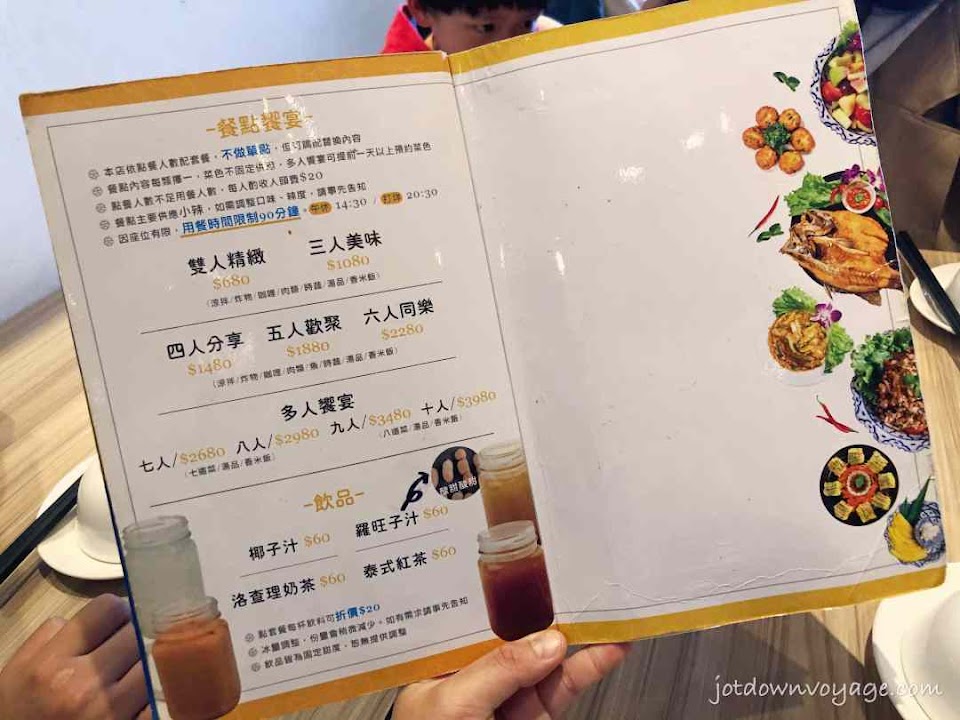 -餐點饗宴-
本店依點餐人數配套餐，不做單點，但可購此替換內容
餐點內容每類擇一，菜色不固定供應，多人饗宴可提前一天以上預約菜色
點餐人數不足用餐人數，每人酌收人頭費$20
餐點主要供應小辣，如需調整口味、辣度，請事先告知
因座位有限，用餐時間限制90分鐘。午休 14:30 / 打烊 20:30
雙人精緻 三人美味
$680 $1080
（涼拌/炸物/咖哩/肉類/時蔬/湯品/香米飯）
四人分享 五人歡聚 六人同樂
$1480 $1880 $2280
（涼拌/炸物/咖哩/肉類/魚/時蔬/湯品/香米飯）
多人饗宴
七人/$2680 八人/$2980 九人/$3480 十人/$3980
（七道菜/湯品/香米飯） （八道菜/湯品/香米飯）
-飲品-
酸甜酸甜
椰子汁 $60 羅旺子汁 $60
洛查理奶茶 $60 泰式紅茶 $60
點套餐每杯飲料可折價$20
冰量調整，份量會稍微減少。如有需求請事先告知
飲品皆為固定甜度，恕無提供調整
jotdownvoyage.com